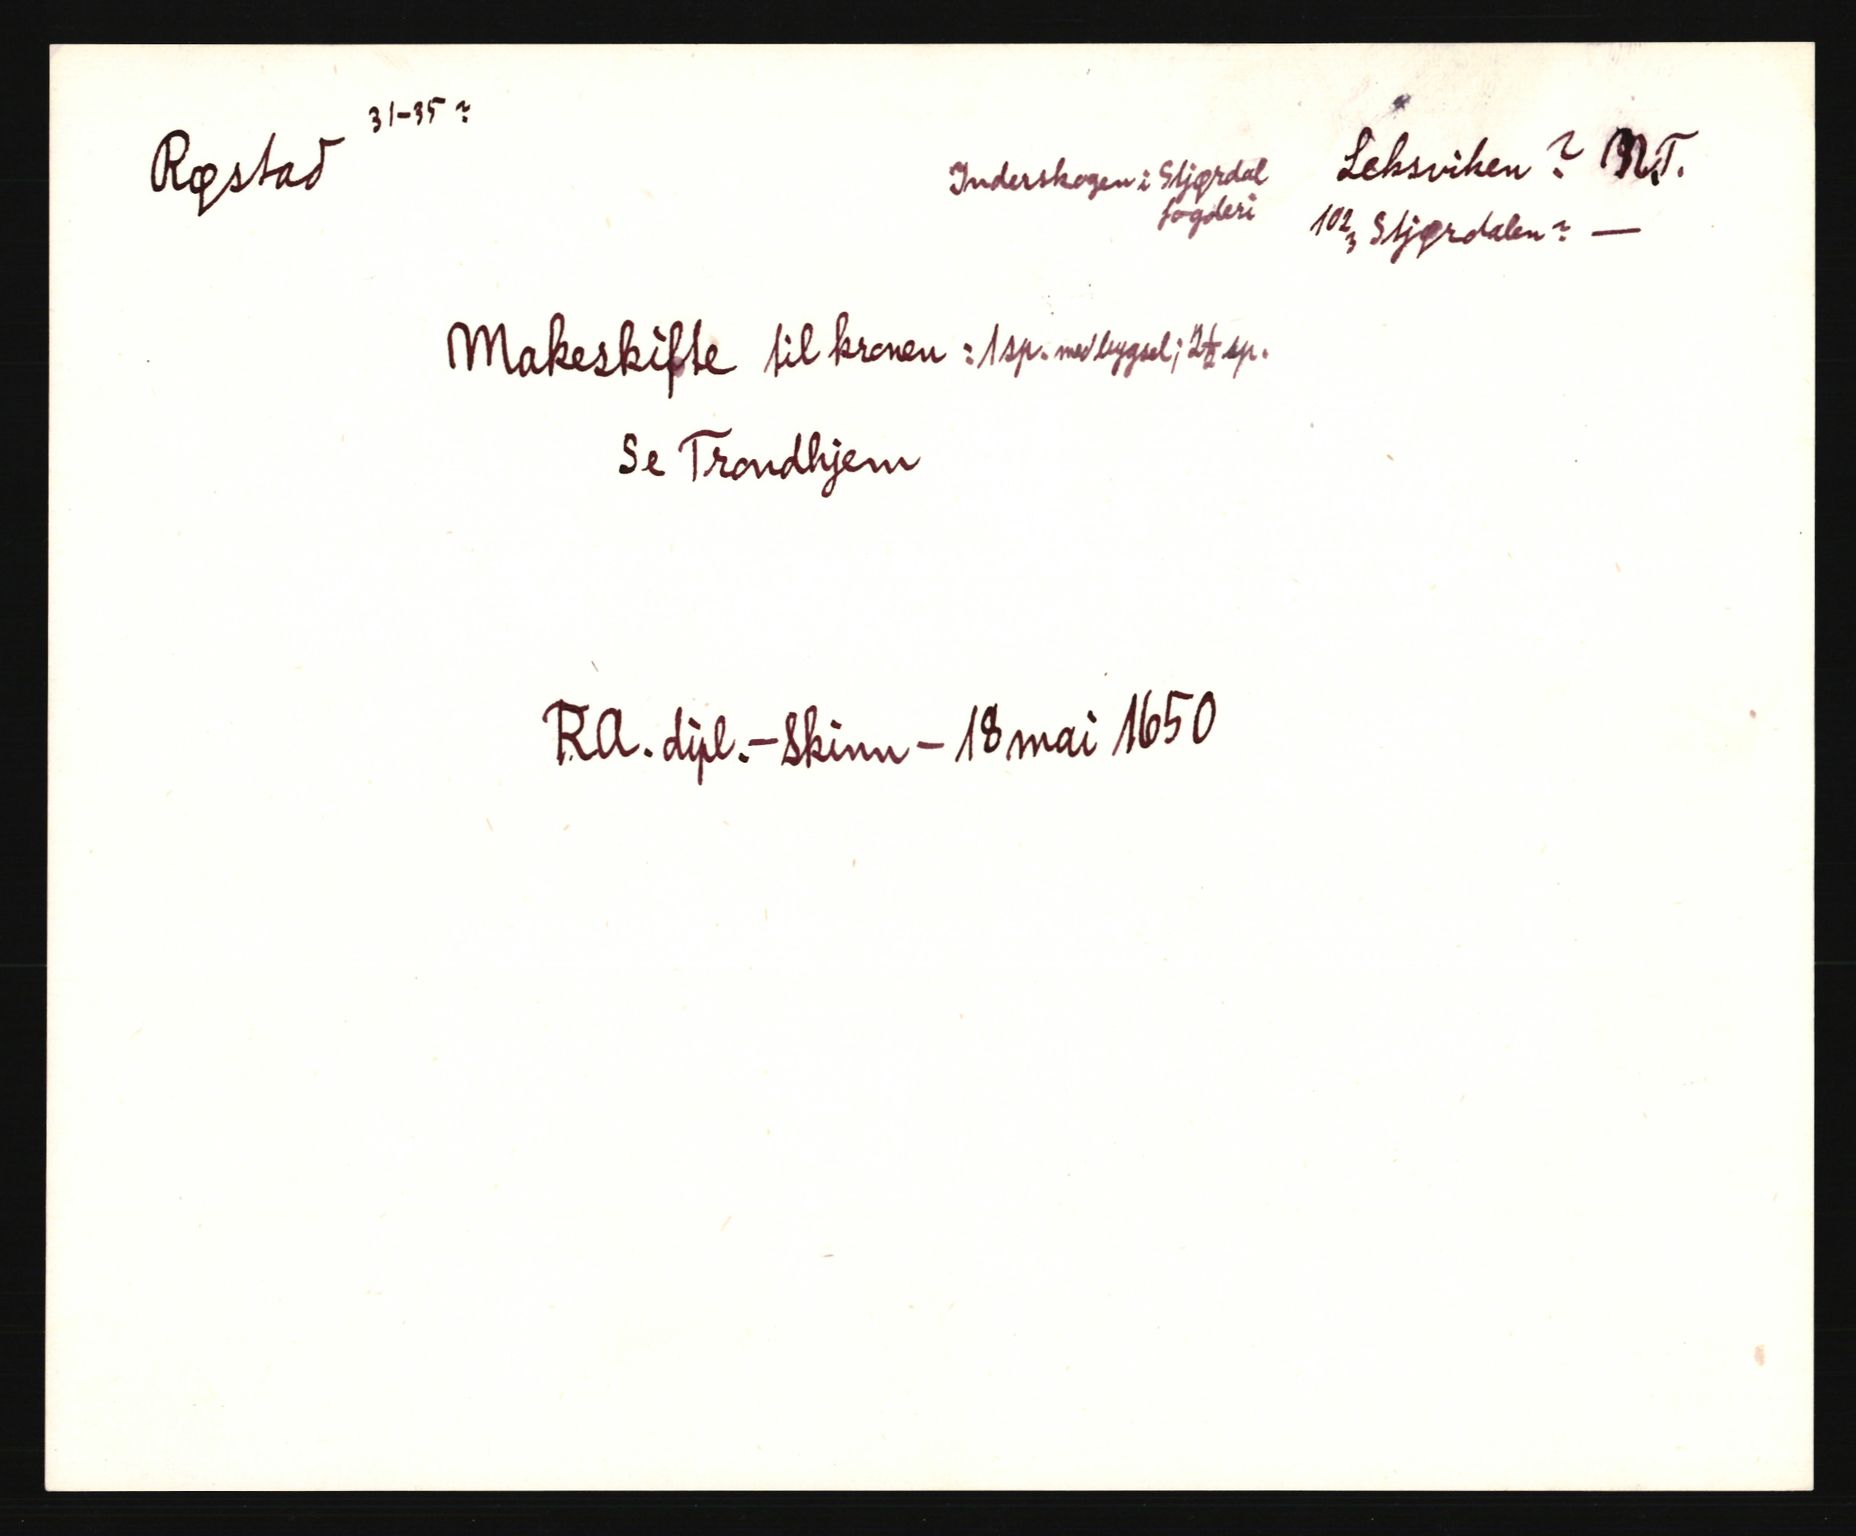 Røstad 31-35 ?
Inderskogen i Stjørdal
fogderi
Leksviken ? N.T.
102,3 Stjørdalen ? —
Makeskifte til kronen : 1 sp. med bygsel ; 2½ sp.
Se Trondhjem
R.A. dipl. - Skinn - 18 mai 1650